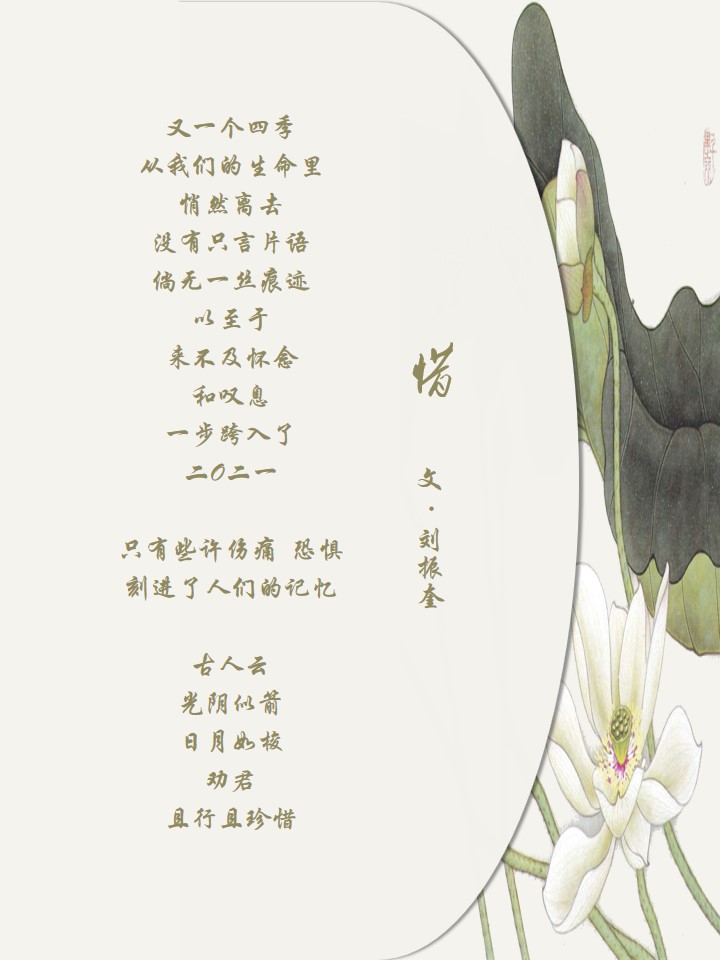 惜
文·刘振奎
又一个四季
从我们的生命里
悄然离去
没有只言片语
倘无一丝痕迹
以至于
来不及怀念
和叹息
一步跨入了
二〇二一
只有些许伤痛 恐惧
刻进了人们的记忆
古人云
光阴似箭
日月如梭
劝君
且行且珍惜